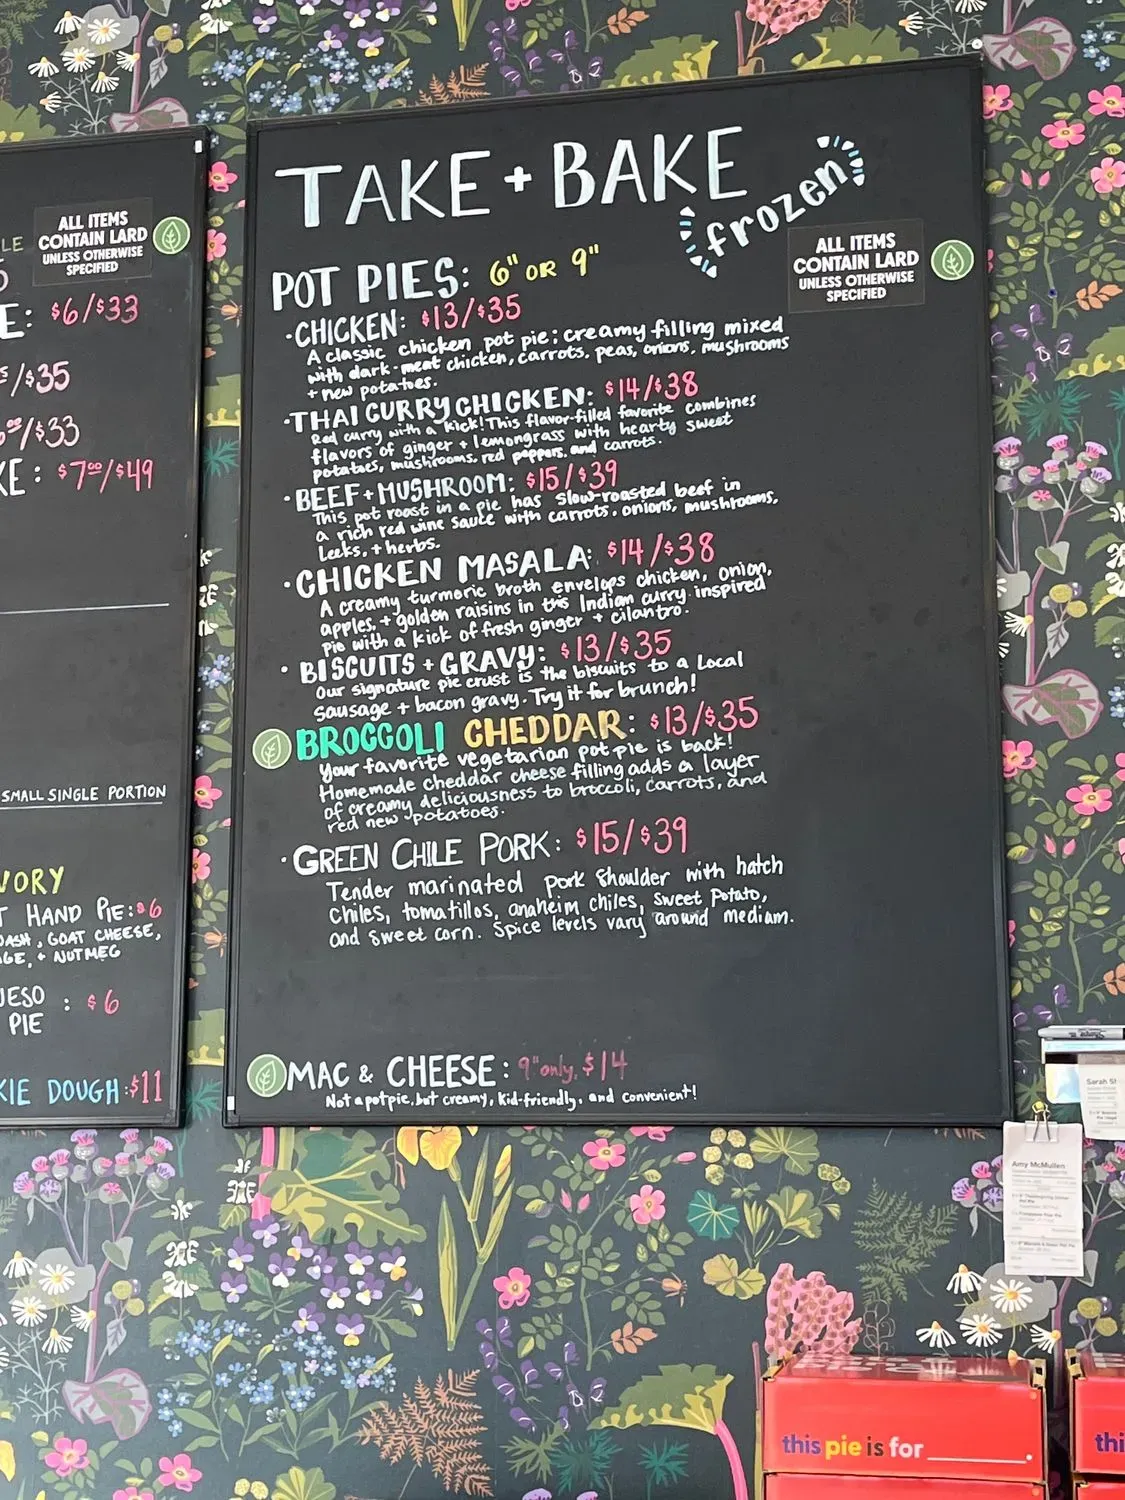 ALL ITEMS
CONTAIN LARD
UNLESS OTHERWISE
SPECIFIED
E: $6/$33
/$35
/$33
KE: $7⁰⁰/$49
SMALL SINGLE PORTION
VORY
T HAND PIE: $6
GOAT CHEESE,
+ NUTMEG
UESO : $6
PIE
KIE DOUGH: $11
TAKE + BAKE
frozen
ALL ITEMS
CONTAIN LARD
UNLESS OTHERWISE
SPECIFIED
POT PIES: 6" OR 9"
· CHICKEN: $13/$35
A classic chicken pot pie; creamy filling mixed
with dark-meat chicken, carrots, peas, onions, mushrooms
+ new potatoes.
· THAI CURRY CHICKEN: $14/$38
Red curry with a kick! This flavor-filled favorite combines
flavors of ginger + lemongrass with hearty sweet
potatoes, mushrooms, red peppers, and carrots.
· BEEF + MUSHROOM: $15/$39
This pot roast in a pie has slow-roasted beef in
a rich red wine sauce with carrots, onions, mushrooms,
leeks, + herbs.
· CHICKEN MASALA: $14/$38
A creamy turmeric broth envelops chicken, onion,
apples, + golden raisins in this Indian curry inspired
pie with a kick of fresh ginger + cilantro.
· BISCUITS + GRAVY: $13/$35
Our signature pie crust is the biscuits to a local
sausage + bacon gravy. Try it for brunch!
BROCCOLI CHEDDAR: $13/$35
Your favorite vegetarian pot pie is back!
Homemade cheddar cheese filling adds a layer
of creamy deliciousness to broccoli, carrots, and
red new potatoes.
· GREEN CHILE PORK: $15/$39
Tender marinated pork shoulder with hatch
chiles, tomatillos, anaheim chiles, sweet potato,
and sweet corn. Spice levels vary around medium.
MAC & CHEESE: 9" only, $14
Not a pot pie, but creamy, kid-friendly, and convenient!
Sarah St
Amy McMullen
this pie is for ______.
thi